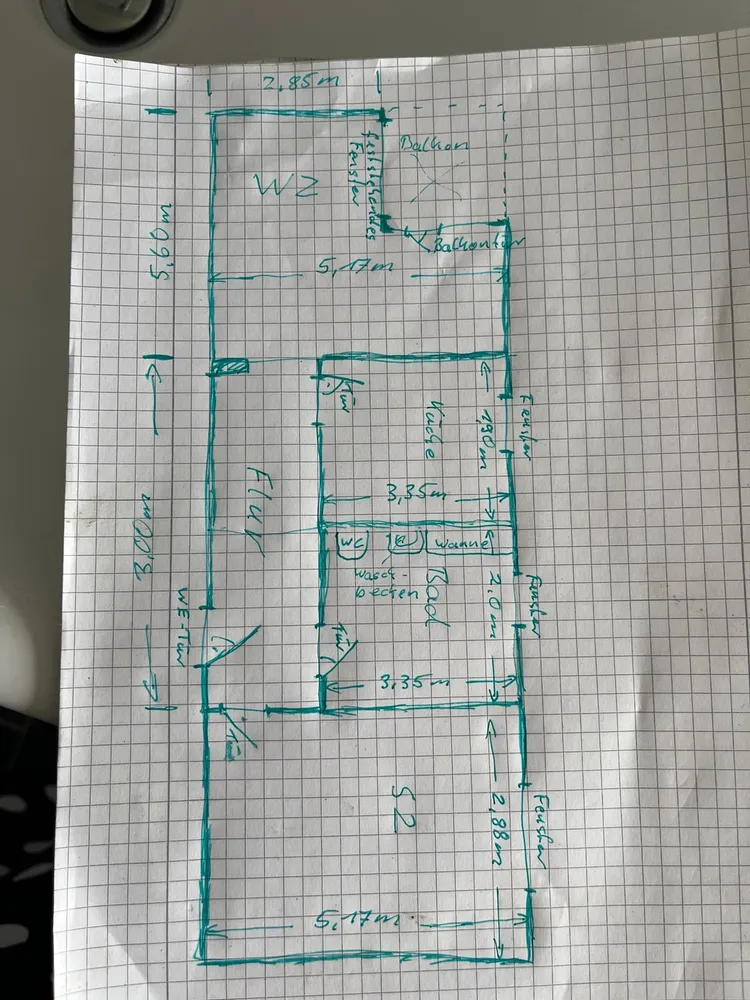 2,85m
Balkon
feststehendes
Fenster
WZ
Balkontür
5,17m
5,60m
Tür
Küche
1,90m
Fenster
3,35m
Flur
WC
Wanne
Wasch-
becken
Bad
2,0m
Fenster
3,00m
WE-Tür
Tür
3,35m
Tür
SZ
2,88m
Fenster
5,17m